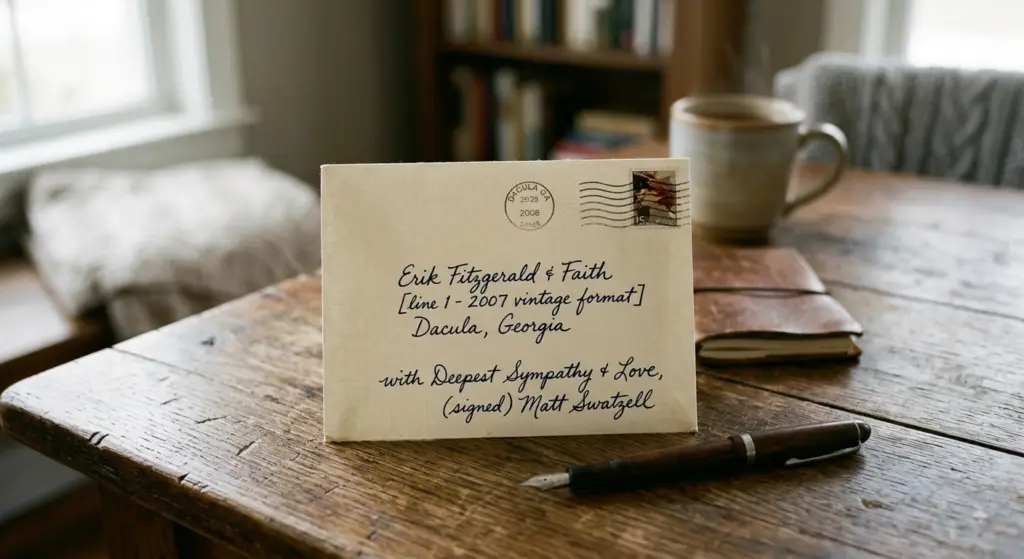 DACULA GA
2008
Erik Fitzgerald & Faith
[line 1 - 2007 vintage format]
Dacula, Georgia
with Deepest Sympathy & Love,
(signed) Matt Swatzell